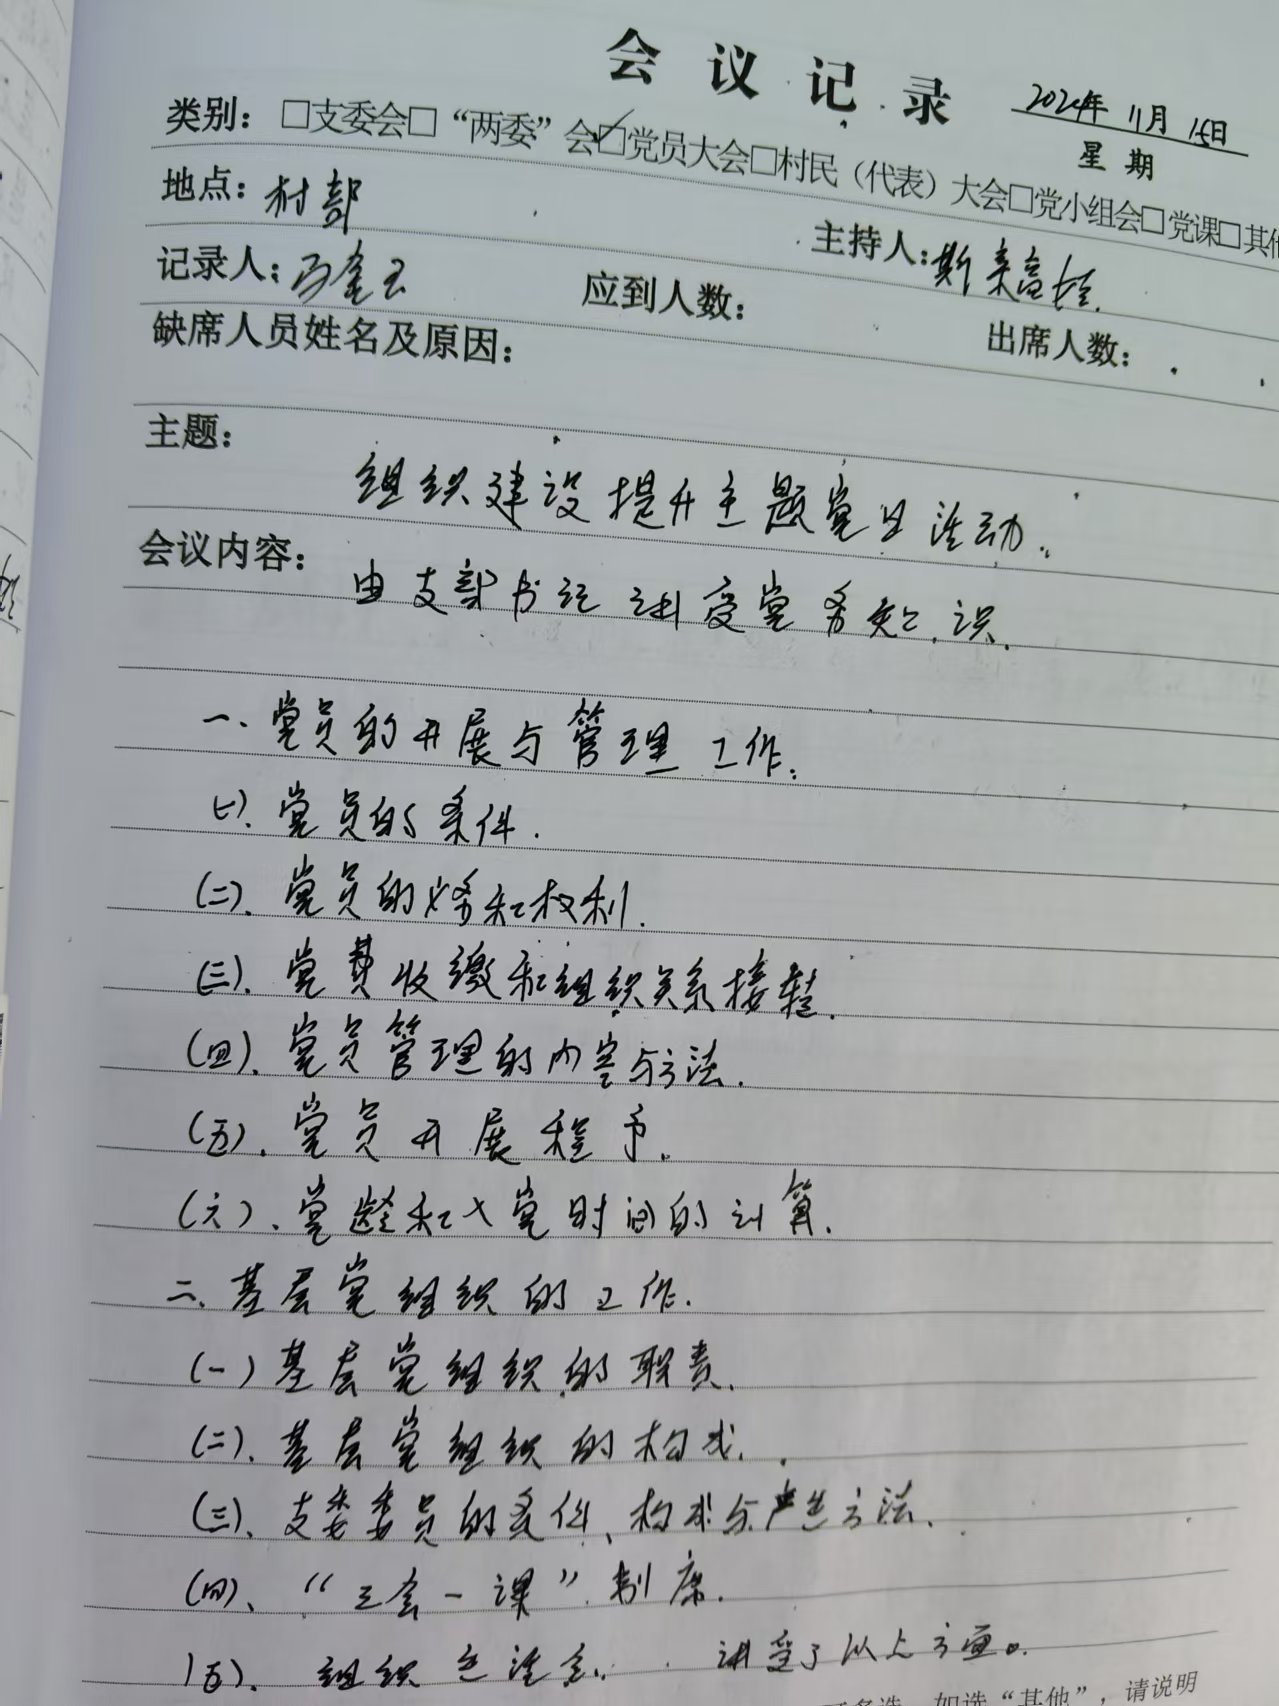 会议记录
2024年 11月 15日
类别：□支委会□“两委”会☑党员大会□村民（代表）大会□党小组会□党课□其他
星期
地点：村部
主持人：斯来富
记录人：
应到人数：
出席人数：
缺席人员姓名及原因：
主题：
组织建设提升主题党日活动。
会议内容：
由支部书记讲受党务知识.
一、党员的开展与管理工作.
(一)、党员的条件.
(二)、党员的义务和权利.
(三)、党费收缴和组织关系接转.
(四)、党员管理的内容与方法.
(五)、党员开展程予.
(六)、党龄和入党时间的计算.
二、基层党组织的工作.
(一)基层党组织的职责.
(二)、基层党组织的构成.
(三)、支委委员的条件、构成与产生方法.
(四)、“三会一课”制席.
(五)、组织生活会. 讲受了以上方面。
可多选，如选“其他”，请说明